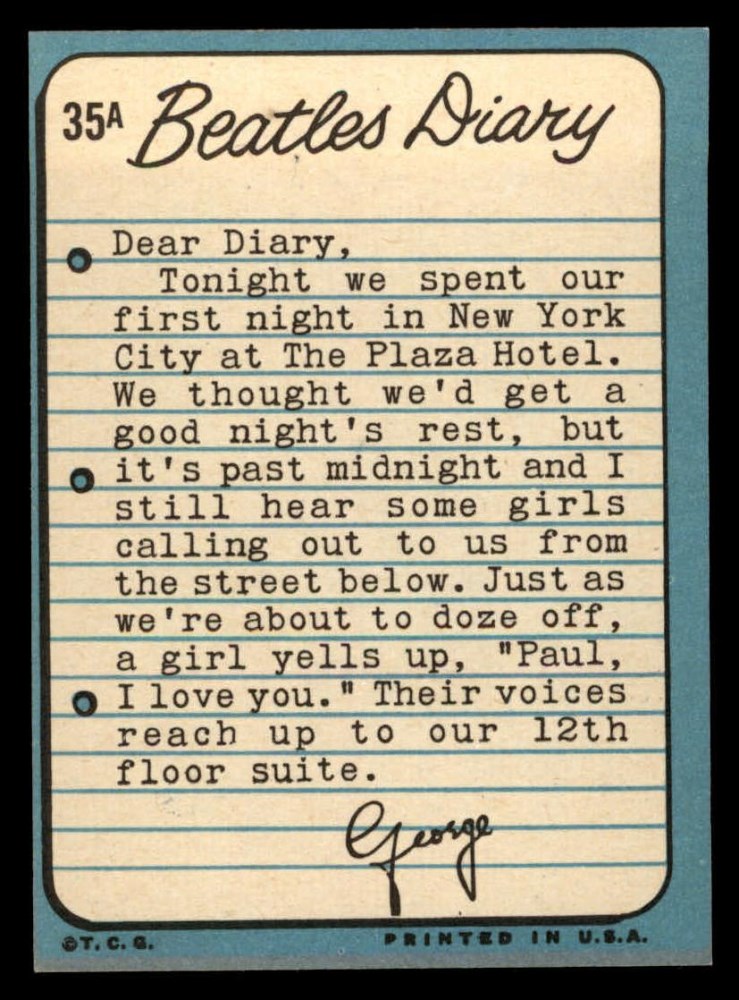 35A Beatles Diary
Dear Diary,
Tonight we spent our
first night in New York
City at The Plaza Hotel.
We thought we'd get a
good night's rest, but
it's past midnight and I
still hear some girls
calling out to us from
the street below. Just as
we're about to doze off,
a girl yells up, "Paul,
I love you." Their voices
reach up to our 12th
floor suite.
George
©T.C.G.
PRINTED IN U.S.A.